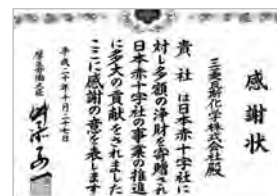 感謝状
三菱瓦斯化学株式会社殿
貴社は日本赤十字社に
対し多額の浄財を寄贈され
日本赤十字社の事業の推進
に多大の貢献をされました
ここに感謝の意を表します
平成二十年十月二十七日
厚生労働大臣